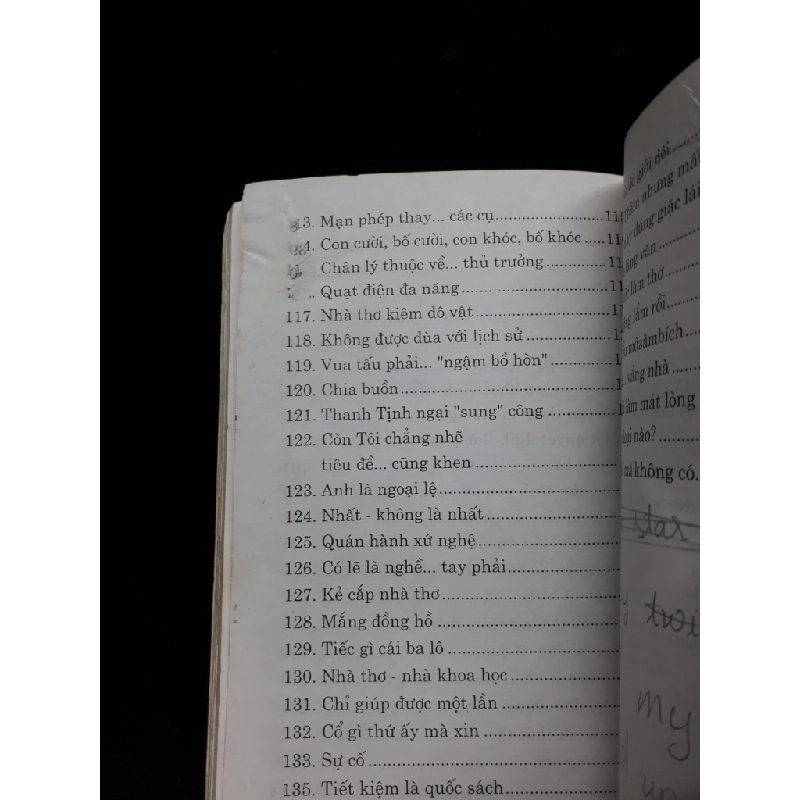 3. Mạn phép thay... các cụ.................11
4. Con cười, bố cười, con khóc, bố khóc .....11
Chân lý thuộc về... thủ trưởng ..........11
.. Quạt điện đa năng.......................1
117. Nhà thơ kiêm đô vật .....................1
118. Không được đùa với lịch sử ..............1
119. Vua tấu phải... "ngậm bồ hòn" ...........1
120. Chia buồn................................
121. Thanh Tịnh ngại "sung" công .............
122. Còn Tôi chẳng nhẽ
tiêu đề... cũng khen ....................
123. Anh là ngoại lệ..........................
124. Nhất - không là nhất.....................
125. Quán hành xứ nghệ .......................
126. Có lẽ là nghề... tay phải................
127. Kẻ cắp nhà thơ ..........................
128. Mắng đồng hồ ............................
129. Tiếc gì cái ba lô .......................
130. Nhà thơ - nhà khoa học...................
131. Chỉ giúp được một lần ...................
132. Cổ gì thứ ấy mà xin .....................
133. Sự cố ...................................
135. Tiết kiệm là quốc sách...................
giới dỏi ......
nhưng mất
dùng giặc lái
văn ..........
làm thơ ......
lầm rồi ......
môzămbích ....
vàng nhà .....
làm mát lòng
nào? .........
mà không có.
star
twi
my
up